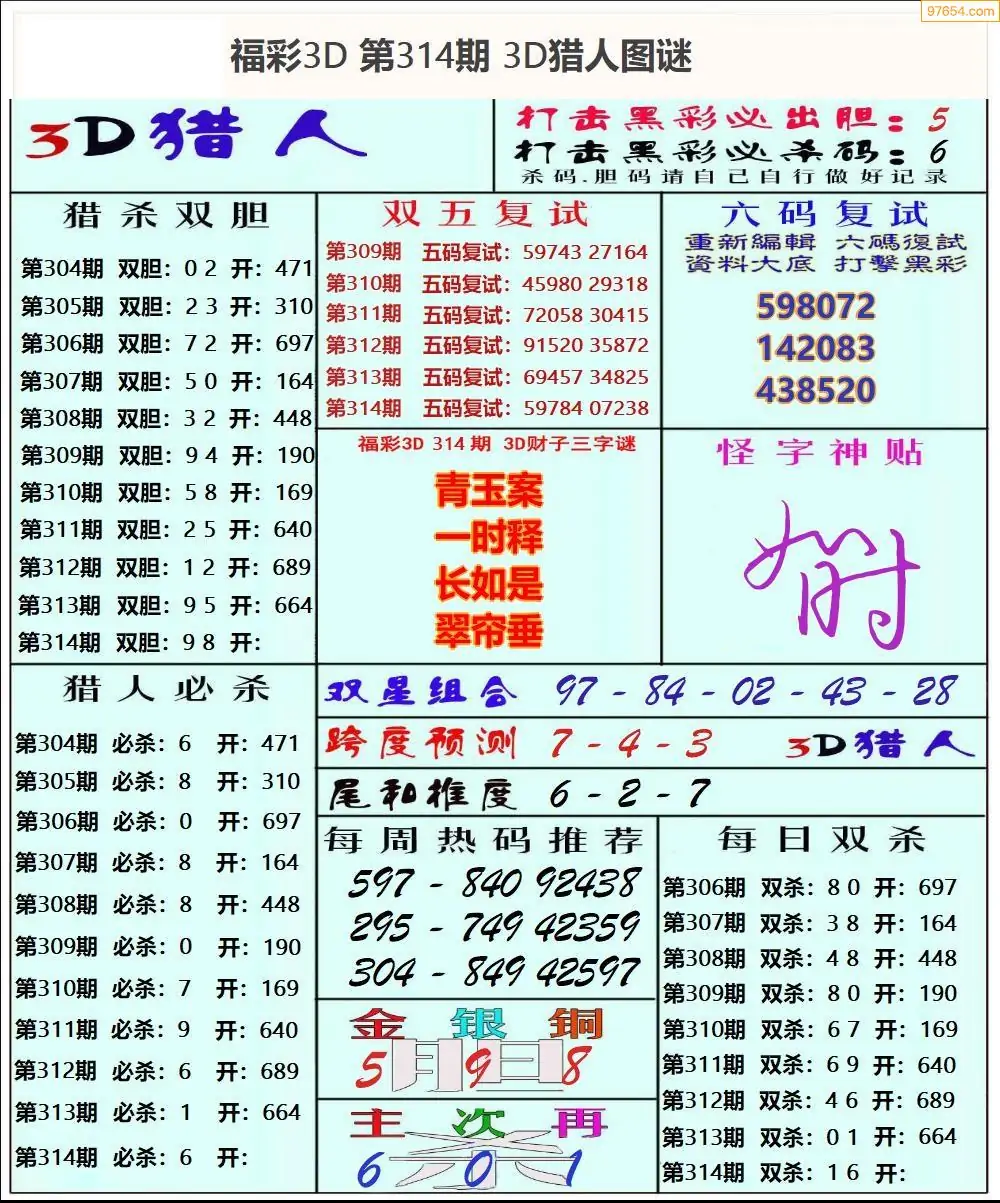 97654.com
福彩3D 第314期 3D猎人图谜
3D猎人
打击黑彩必出胆：5
打击黑彩必杀码：6
杀码.胆码请自己自行做好记录
猎杀双胆
第304期 双胆：0 2 开：471
第305期 双胆：2 3 开：310
第306期 双胆：7 2 开：697
第307期 双胆：5 0 开：164
第308期 双胆：3 2 开：448
第309期 双胆：9 4 开：190
第310期 双胆：5 8 开：169
第311期 双胆：2 5 开：640
第312期 双胆：1 2 开：689
第313期 双胆：9 5 开：664
第314期 双胆：9 8 开：
双五复试
第309期 五码复试：59743 27164
第310期 五码复试：45980 29318
第311期 五码复试：72058 30415
第312期 五码复试：91520 35872
第313期 五码复试：69457 34825
第314期 五码复试：59784 07238
六码复试
重新編輯 六碼復試
資料大底 打擊黑彩
598072
142083
438520
福彩3D 314 期 3D财子三字谜
青玉案
一时释
长如是
翠帘垂
怪字神贴
猎人必杀
第304期 必杀：6 开：471
第305期 必杀：8 开：310
第306期 必杀：0 开：697
第307期 必杀：8 开：164
第308期 必杀：8 开：448
第309期 必杀：0 开：190
第310期 必杀：7 开：169
第311期 必杀：9 开：640
第312期 必杀：6 开：689
第313期 必杀：1 开：664
第314期 必杀：6 开：
双星组合 97 - 84 - 02 - 43 - 28
跨度预测 7 - 4 - 3 3D猎人
尾和推度 6 - 2 - 7
每周热码推荐
597 - 840 92438
295 - 749 42359
304 - 849 42597
金银铜
胆
5 9 8
主次再
杀
6 0 1
每日双杀
第306期 双杀：8 0 开：697
第307期 双杀：3 8 开：164
第308期 双杀：4 8 开：448
第309期 双杀：8 0 开：190
第310期 双杀：6 7 开：169
第311期 双杀：6 9 开：640
第312期 双杀：4 6 开：689
第313期 双杀：0 1 开：664
第314期 双杀：1 6 开：